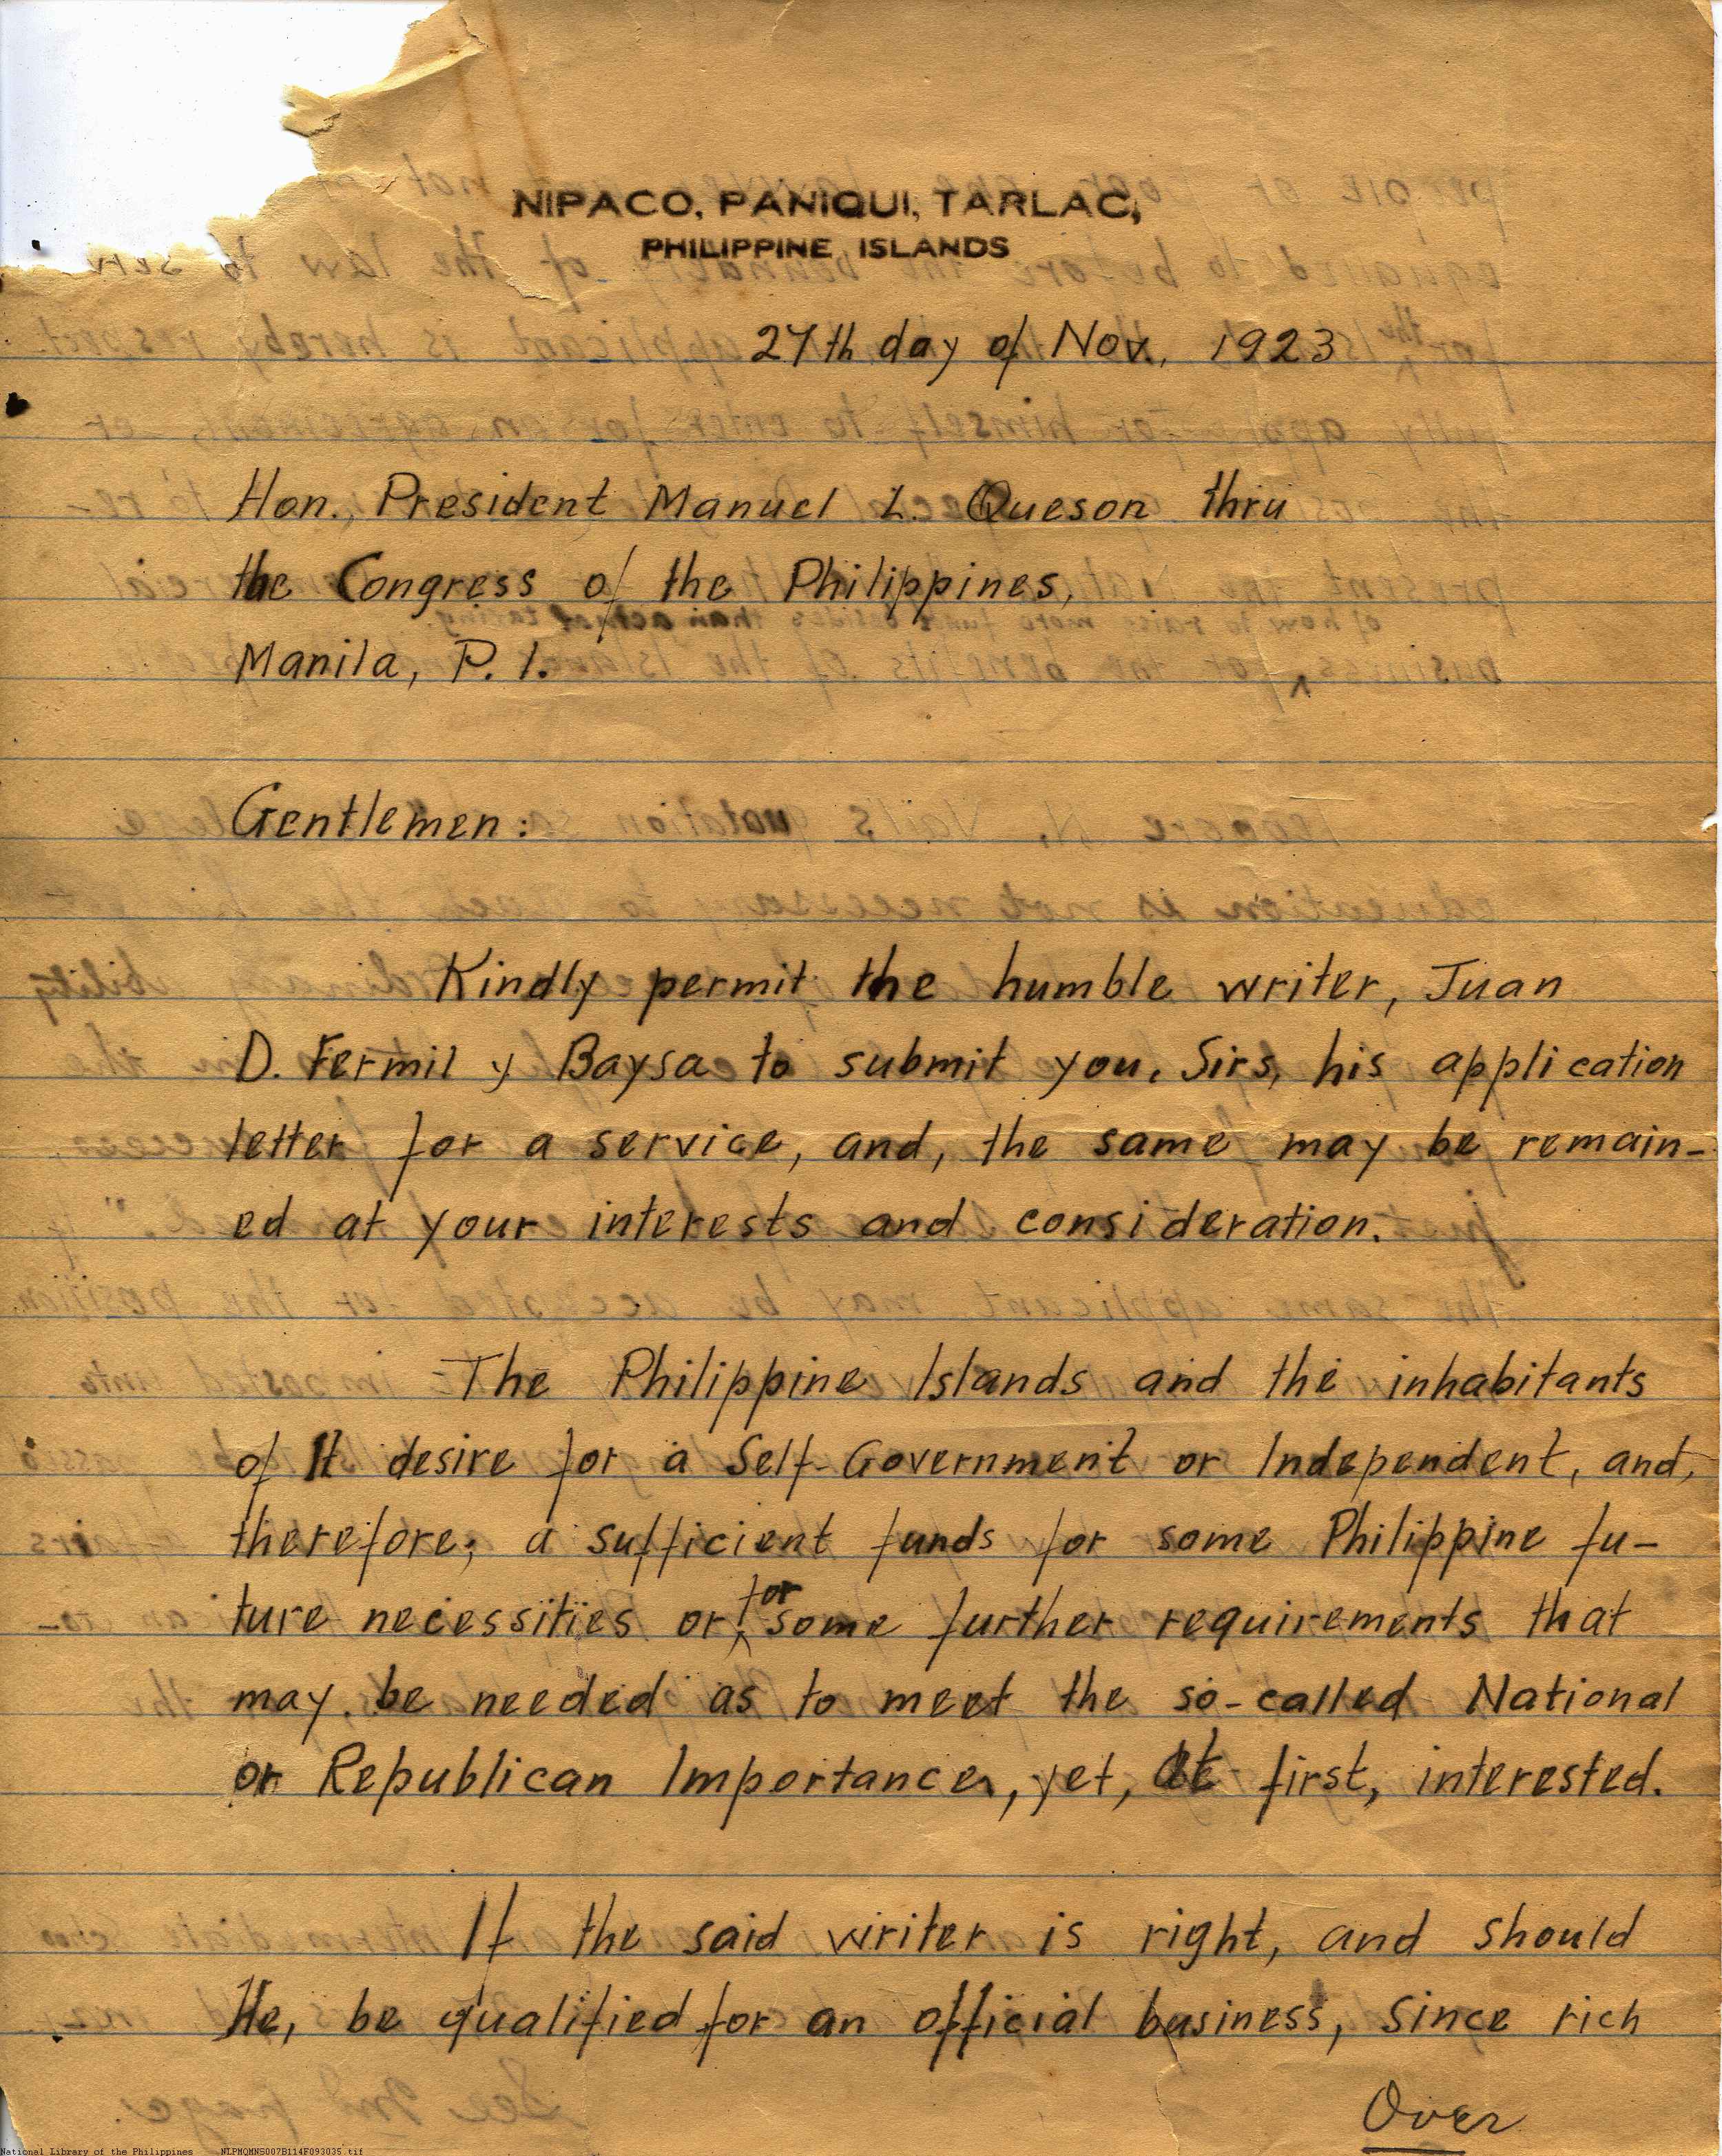 NIPACO, PANIQUI, TARLAC,
PHILIPPINE ISLANDS
27th day of Nov. 1923
Hon. President Manuel L. Queson thru
the Congress of the Philippines,
Manila, P. I.
Gentlemen:
Kindly permit the humble writer, Juan
D. Fermil y Baysa to submit you, Sirs, his application
letter for a service, and, the same may be remain-
ed at your interests and consideration.
The Philippine Islands and the inhabitants
of It desire for a Self-Government or Independent, and,
therefore; a sufficient funds for some Philippine fu-
ture necessities or for some further requirements that
may be needed as to meet the so-called National
or Republican Importance, yet, at first, interested.
If the said writer is right, and should
He, be qualified for an official business, since rich
Over
National Library of the Philippines NLPMQMNB007B114F093035.tif